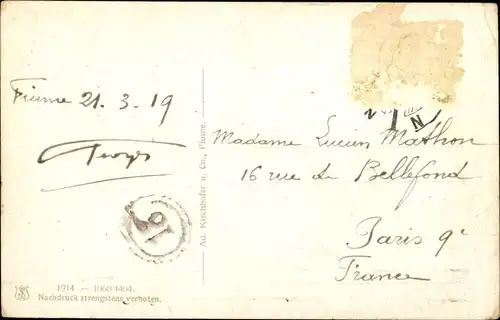 Fiume 21.3.19
Georges
Madame Lucien Mathon
16 rue de Bellefond
Paris 9e
France
Ad. Kirchhofer u. Co., Fiume.
16
N
1914 —
Nachdruck strengstens verboten.